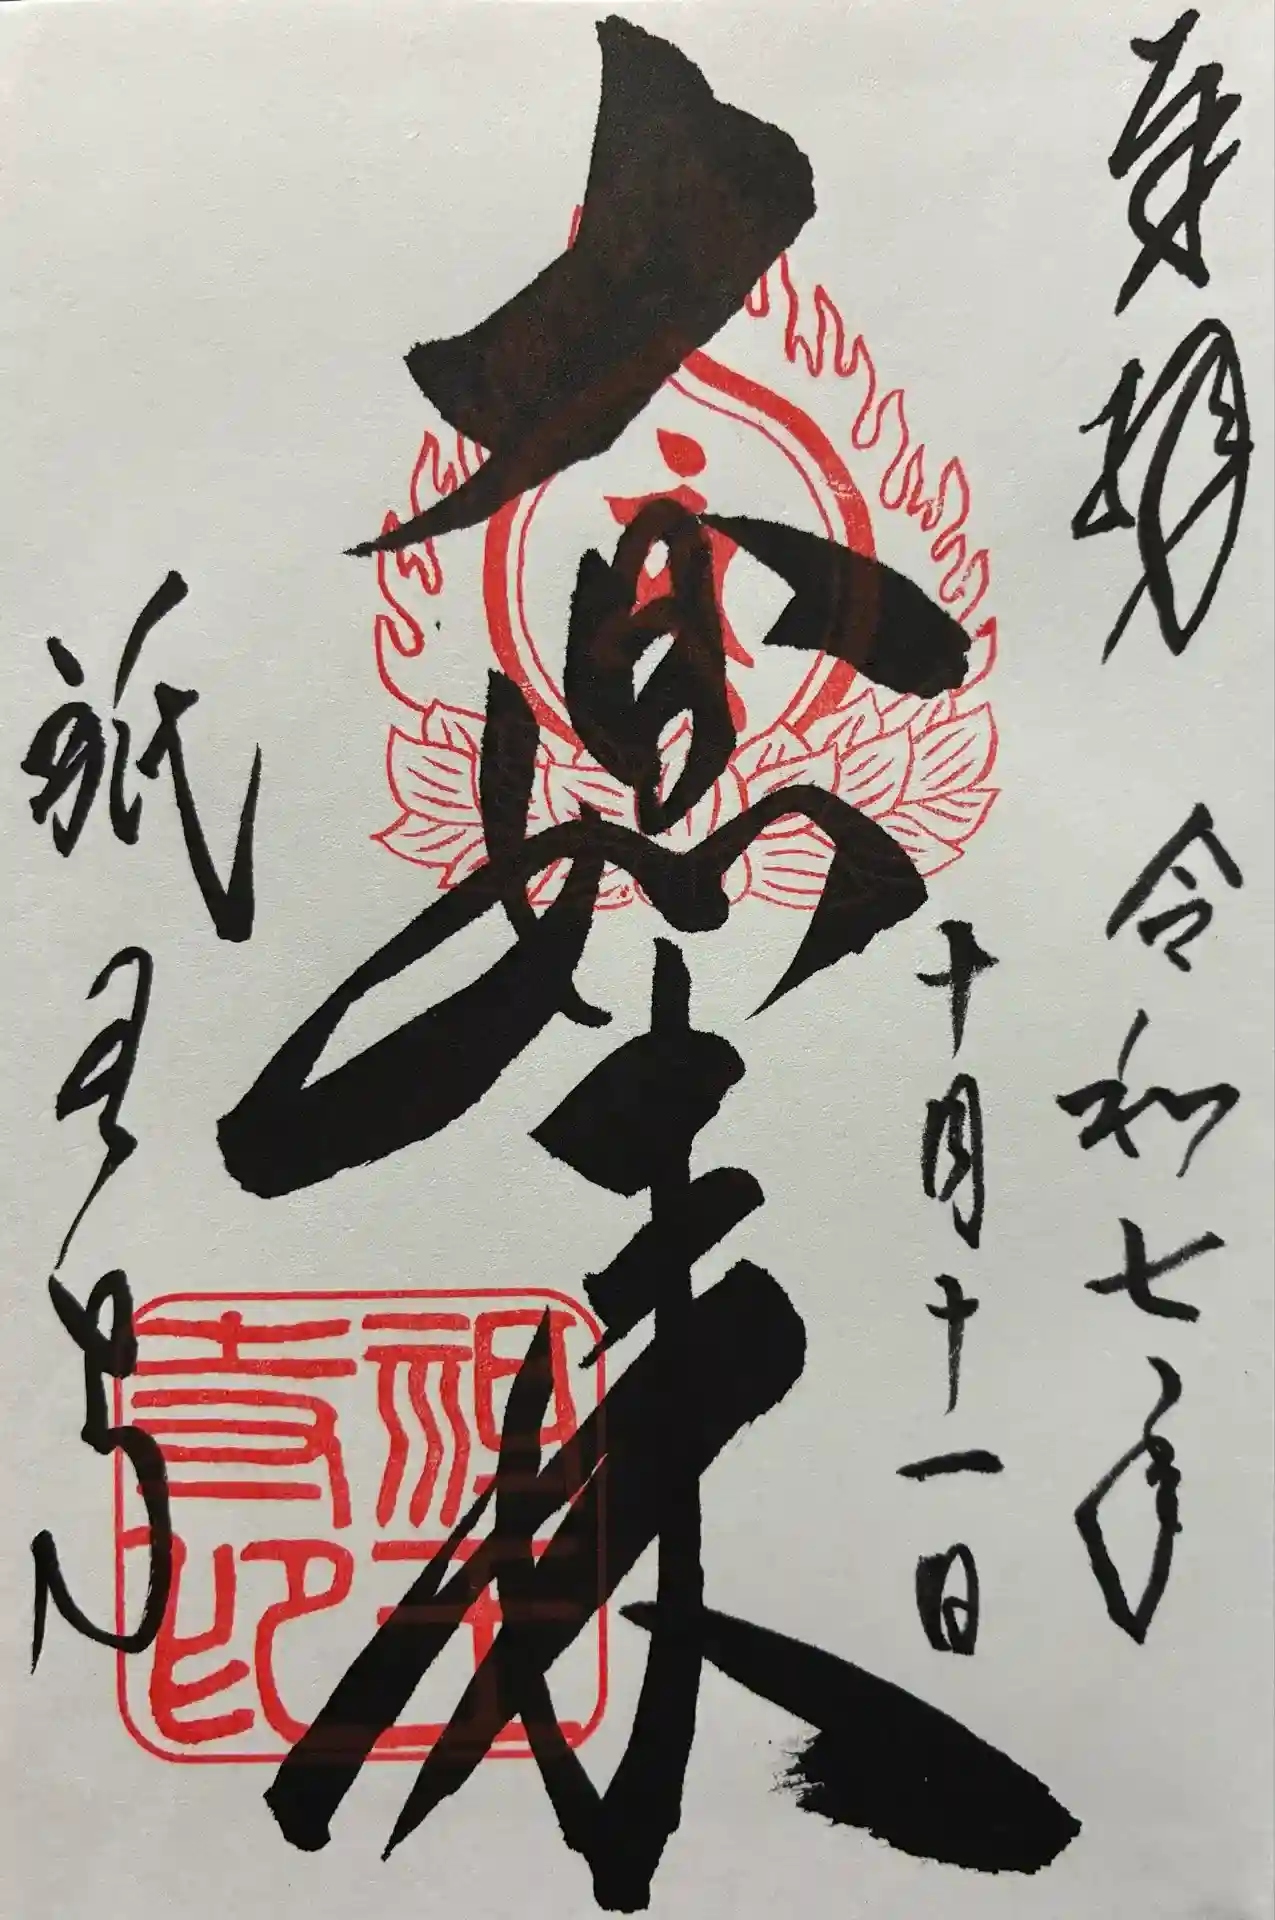 奉拝 令和七年
十月十一日
大日如来
祇王寺
祇王
寺印